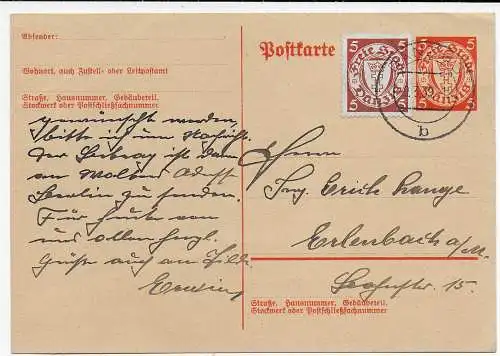 Absender:
Wohnort, auch Zustell- oder Leitpostamt
Straße, Hausnummer, Gebäudeteil,
Stockwerk oder Postschließfachnummer
gewünscht werden,
bitte ich um Nachricht.
Der Betrag ist dann
an Adresse
Berlin zu senden.
Für heute von
uns allen herzl.
Grüße auch an
Erwin
Postkarte
5 Freie Stadt 5
5 Danzig 5
5 Freie Stadt 5
5 Danzig 5
b
Herrn
Ing. Erich Lange
Erlenbach a/M.
15.
Straße, Hausnummer, Gebäudeteil,
Stockwerk oder Postschließfachnummer